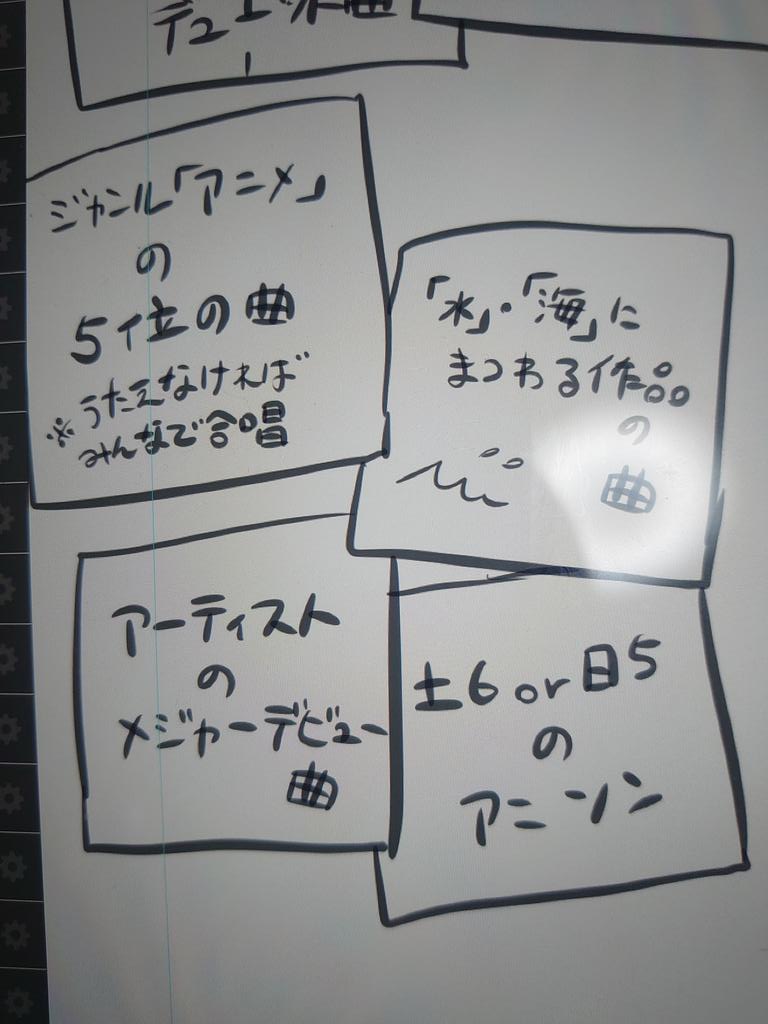 デュエット曲
ジャンル「アニメ」
の
5位の曲
※うたえなければ
みんなで合唱
「水」・「海」に
まつわる作品
の
曲
アーティスト
の
メジャーデビュー
曲
土6 or 日5
の
アニソン